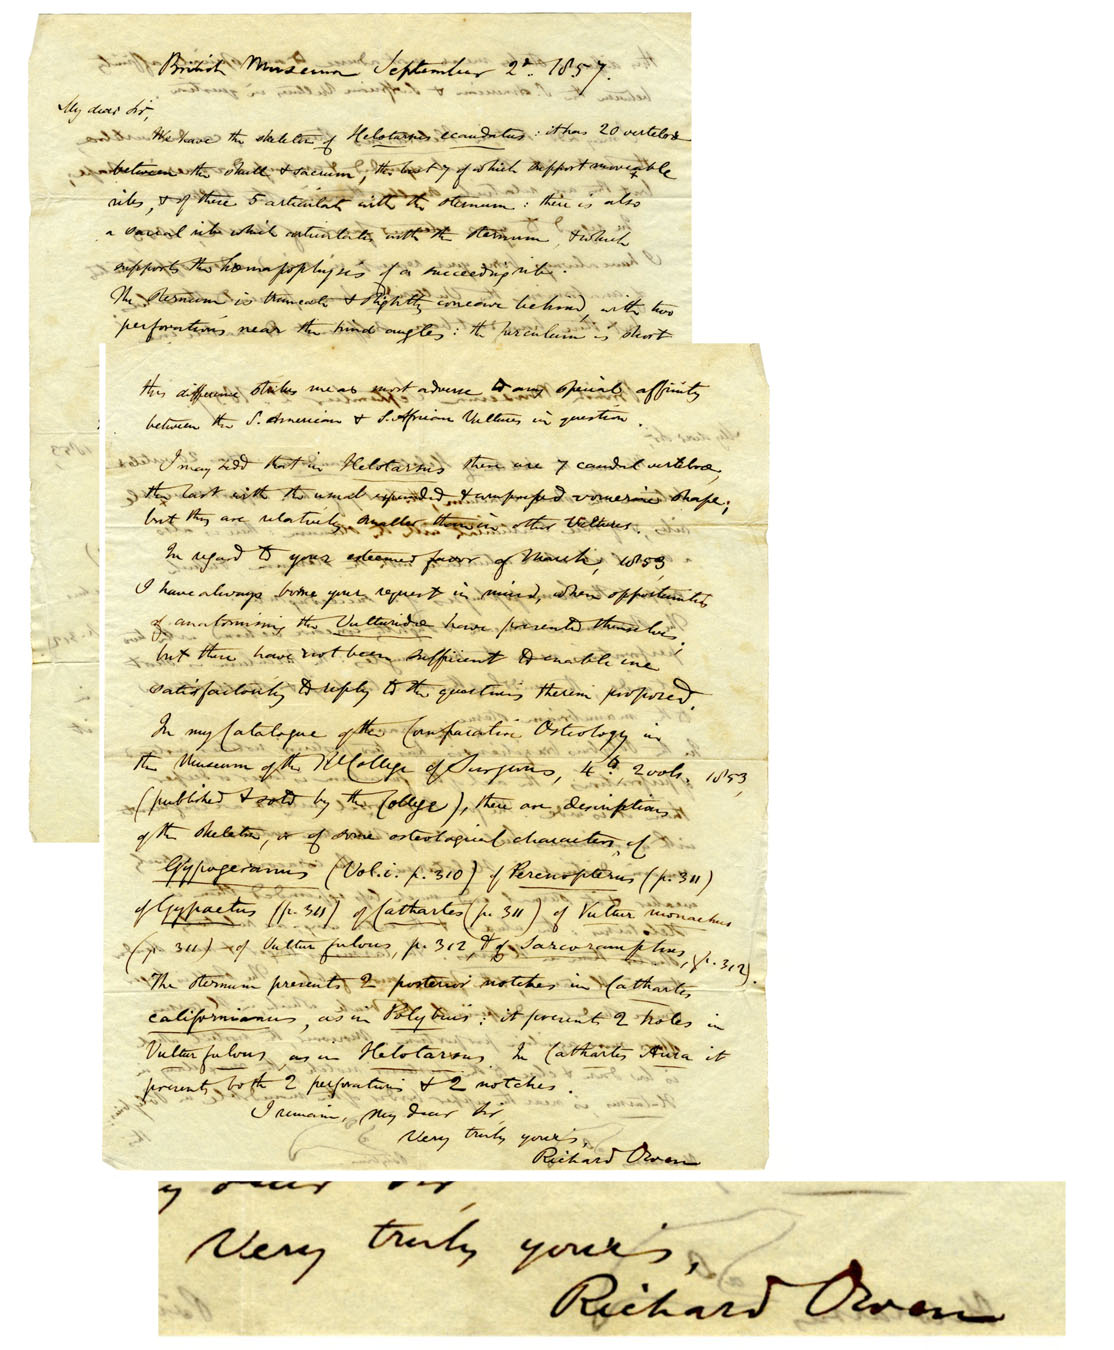 British Museum September 2d. 1857.
My dear Sir,
We have the skeleton of Helotarsus ecaudatus: it has 20 vertebræ
between the skull & sacrum, the last 7 of which support moveable
ribs, & of these 5 articulate with the sternum: there is also
a sacral rib which articulates with the sternum, & which
supports the hæmapophysis of a succeeding rib.
The sternum is truncate & slightly concave behind, with two
perforations near the hind angles: the furculum is short
this difference strikes me as most adverse to any special affinity
between the S. American & S. African Vultures in question.
I may add that in Helotarsus there are 7 caudal vertebræ,
the last with the usual expanded & compressed vomerine shape;
but they are relatively smaller than in other Vultures.
In regard to your esteemed favor of March, 1853,
I have always borne your request in mind, when opportunities
of anatomising the Vulturidæ have presented themselves;
but these have not been sufficient to enable me
satisfactorily to reply to the questions therein proposed.
In my Catalogue of the Comparative Osteology in
the Museum of the Rl College of Surgeons, 4to, 2 vols. 1853,
(published & sold by the College), there are descriptions
of the skeleton, or of some osteological characters, of
Gypogeranus (Vol. i. p. 310) of Percnopterus (p. 311)
of Gypaetus (p. 311) of Cathartes (p. 311) of Vultur monachus
(p. 311) of Vultur fulvus, p. 312, & of Sarcoramphus, (p. 312).
The sternum presents 2 posterior notches in Cathartes
californianus, as in Polyborus: it presents 2 holes in
Vultur fulvus as in Helotarsus. In Cathartes Aura it
presents both 2 perforations & 2 notches.
I remain, my dear Sir,
Very truly yours,
Richard Owen
y dear Sir,
Very truly yours,
Richard Owen